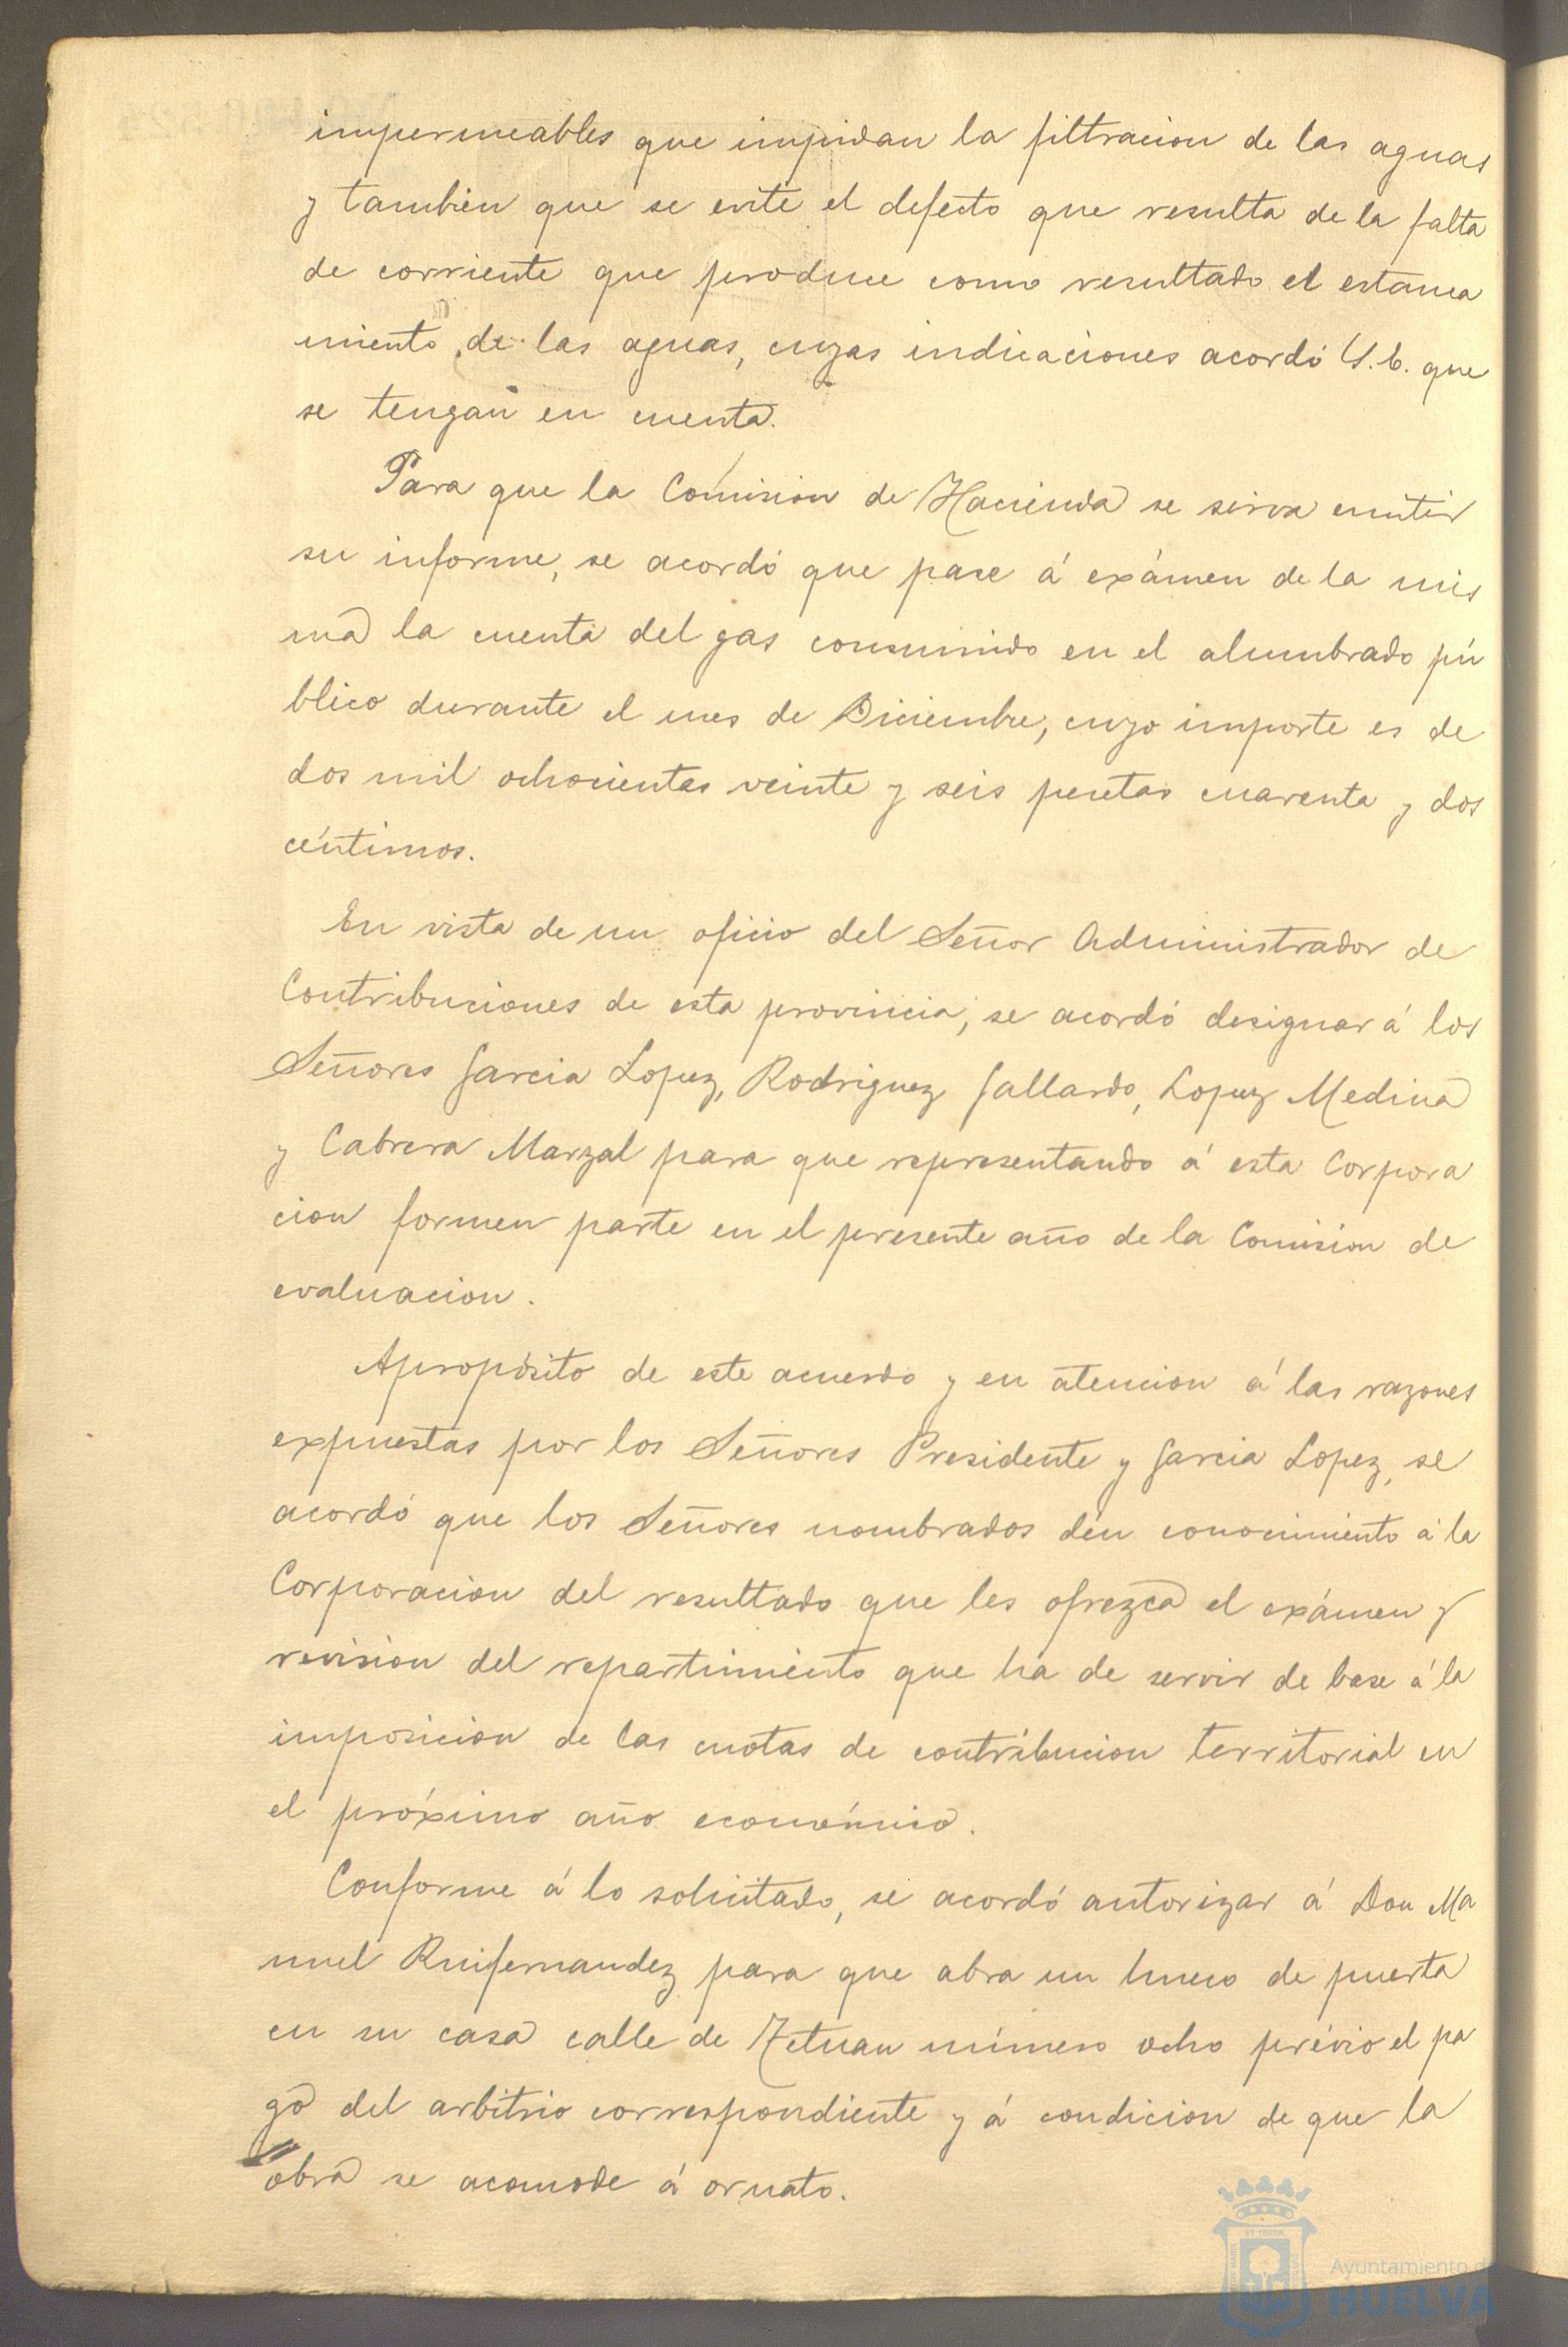 impermeables que impidan la filtracion de las aguas
y también que se evite el defecto que resulta de la falta
de corriente que produce como resultado el estanca
miento de las aguas, cuyas indicaciones acordó S. E. que
se tengan en cuenta.
Para que la Comision de Hacienda se sirva emitir
su informe, se acordó que pase á exámen de la mis
ma la cuenta del gas consumido en el alumbrado pú
blico durante el mes de Diciembre, cuyo importe es de
dos mil ochocientas veinte y seis pesetas cuarenta y dos
céntimos.
En vista de un oficio del Señor Administrador de
Contribuciones de esta provincia, se acordó designar á los
Señores Garcia Lopez, Rodriguez Gallardo, Lopez Medina
y Cabrera Marzal para que representando á esta Corpora
cion formen parte en el presente año de la Comision de
evaluacion.
Apropósito de este acuerdo y en atencion á las razones
expuestas por los Señores Presidente y Garcia Lopez, se
acordó que los Señores nombrados den conocimiento á la
Corporacion del resultado que les ofrezca el exámen y
revision del repartimiento que ha de servir de base á la
imposicion de las cuotas de contribucion territorial en
el próximo año económico.
Conforme á lo solicitado, se acordó autorizar á Don Ma
nuel Ruifernandez para que abra un hueco de puerta
en su casa calle de Tetuan número ocho prévio el pa
go del arbitrio correspondiente y á condicion de que la
obra se acomode á ornato.
Ayuntamiento d
HUELVA